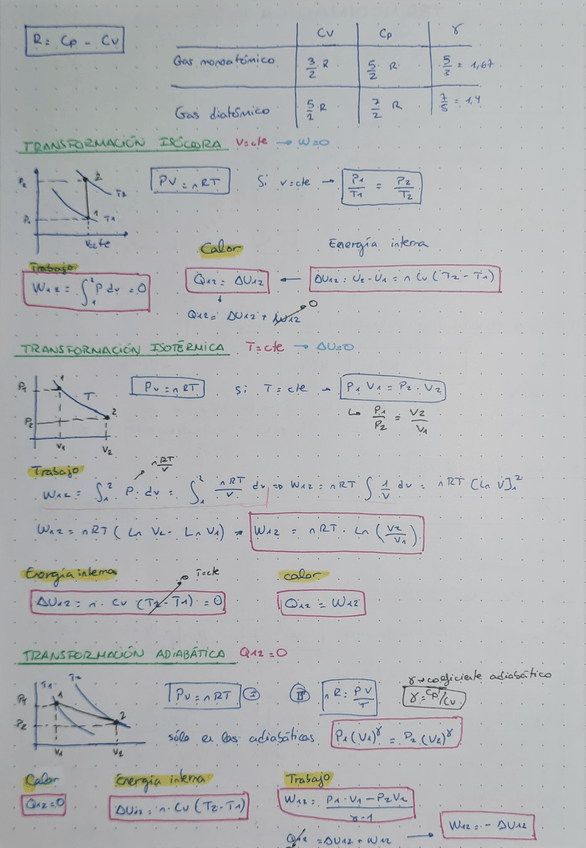 R = Cp - Cv
Cv Cp γ
Gas monoatómico 3/2 R 5/2 R 5/3 = 1,67
Gas diatómico 5/2 R 7/2 R 7/5 = 1,4
TRANSFORMACIÓN ISÓCORA V=cte → W=0
P2 2 T2
P1 1 T1
V=cte
PV = nRT Si v=cte → P1/T1 = P2/T2
Trabajo Calor Energía interna
W12 = ∫₁² P dv = 0 Q12 = ΔU12 ← ΔU12 = U2 - U1 = n Cv (T2 - T1)
Q12 = ΔU12 + W12 0
TRANSFORMACIÓN ISOTÉRMICA T=cte → ΔU=0
P1 1 T
P2 2
V1 V2
PV = nRT si T = cte → P1 V1 = P2 · V2
↳ P1/P2 = V2/V1
Trabajo nRT/V
W12 = ∫₁² P · dv = ∫₁² nRT/V dv ⇒ W12 = nRT ∫ 1/V dv = nRT [Ln V]₁²
W12 = nRT ( Ln V2 - Ln V1 ) ⇒ W12 = nRT · Ln (V2/V1)
Energía interna T=cte calor
ΔU12 = n · Cv (T2 - T1) = 0 Q12 = W12
TRANSFORMACIÓN ADIABÁTICA Q12 = 0
P1 T1 1 T2
P2 2
V1 V2
γ → coeficiente adiabático
PV = nRT Ⓘ Ⓘⓘ nR = PV/T γ = Cp/Cv
sólo en las adiabáticas P1 (V1)^γ = P2 (V2)^γ
Calor Energía interna Trabajo
Q12 = 0 ΔU12 = n · Cv (T2 - T1) W12 = P1 · V1 - P2 V2 / γ - 1
Q12 = ΔU12 + W12 → W12 = - ΔU12